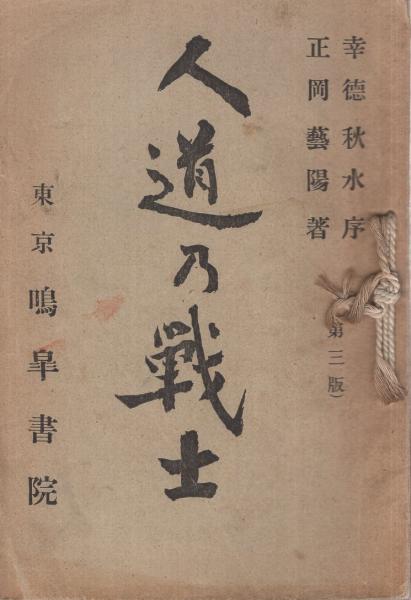 幸德秋水序
正岡藝陽著
第三版）
人道乃戰士
東京 鳴皐書院